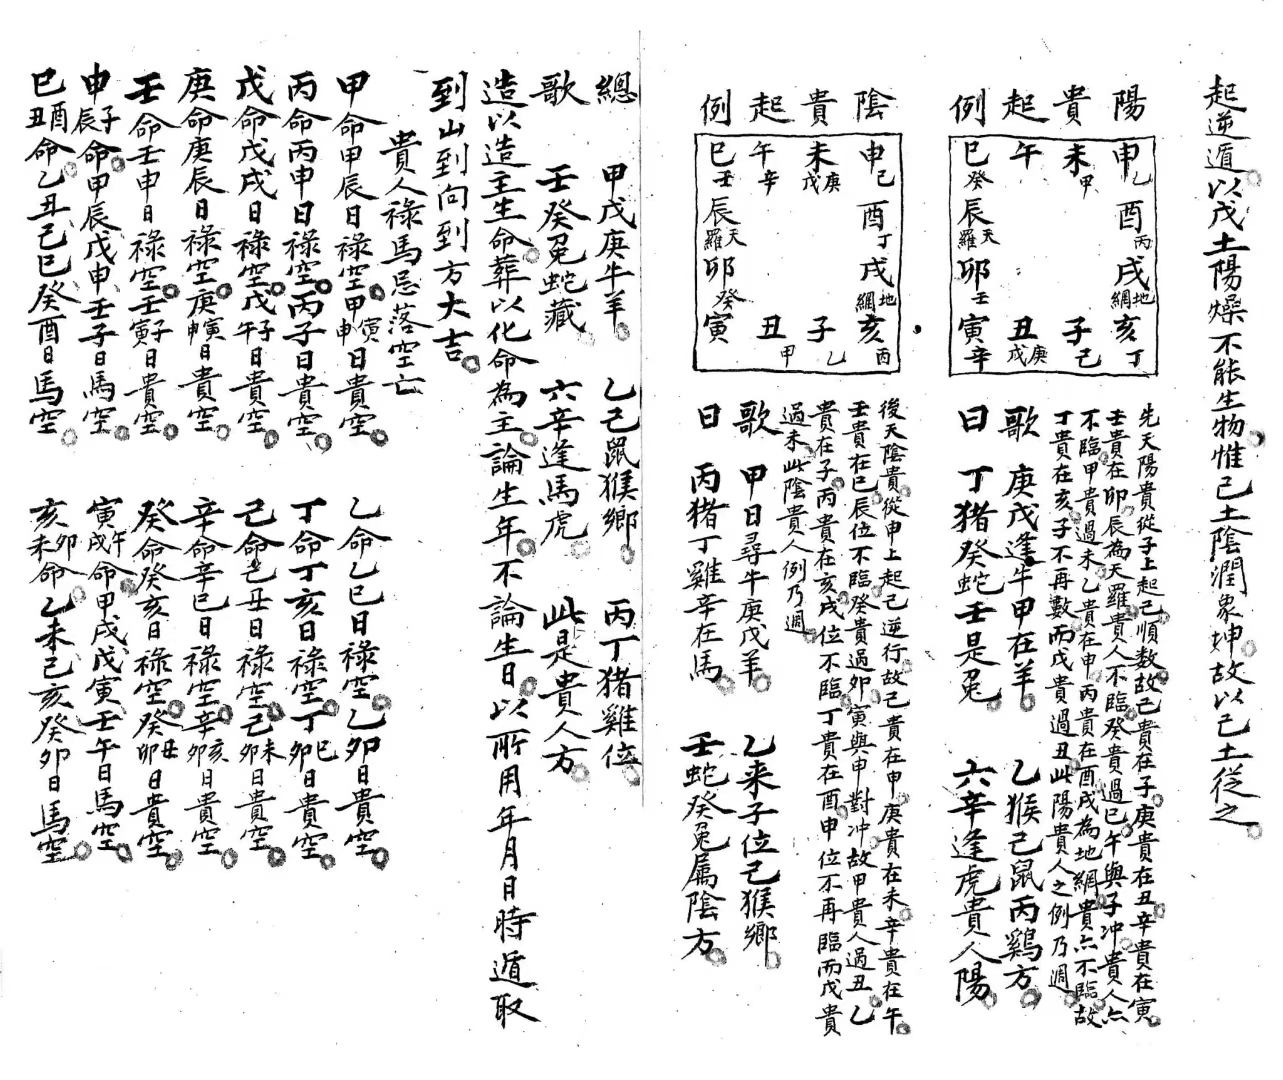 起逆遁以戊土陽燥不能生物惟己土陰潤象坤故以己土從之
陽貴起例
申乙 酉丙 戌地網 亥丁
未甲 子己
午 丑庚戊
巳癸 辰天羅 卯壬 寅辛
先天陽貴從子上起己順数故己貴在子庚貴在丑辛貴在寅
壬貴在卯辰為天羅貴人不臨癸貴過巳午與子冲貴人亦
不臨甲貴過未乙貴在申丙貴在酉戌為地網貴亦不臨故
丁貴在亥子不再數而戊貴過丑此陽貴人之例乃週
歌 庚戊逢牛甲在羊 乙猴己鼠丙鷄方
曰 丁猪癸蛇壬是兔 六辛逢虎貴人陽
陰貴起例
申己 酉丁 戌地網 亥丙
未庚戊 子乙
午辛 丑甲
巳壬 辰天羅 卯癸 寅
後天陰貴從申上起己逆行故己貴在申庚貴在未辛貴在午
壬貴在巳辰位不臨癸貴過卯寅與申對冲故甲貴人過丑乙
貴在子丙貴在亥戌位不臨丁貴在酉申位不再臨而戊貴
過未此陰貴人例乃週
歌 甲日尋牛庚戊羊 乙来子位己猴鄉
曰 丙猪丁雞辛在馬 壬蛇癸兔属陰方
總 甲戊庚牛羊 乙己鼠猴鄉 丙丁猪雞位
歌 壬癸兔蛇藏 六辛逢馬虎 此是貴人方
造以造主生命葬以化命為主論生年不論生日以所用年月日時遁取
到山到向到方大吉
貴人祿馬忌落空亡
甲命甲辰日祿空甲寅申日貴空 乙命乙巳日祿空乙卯日貴空
丙命丙申日祿空丙子日貴空 丁命丁亥日祿空丁巳卯日貴空
戊命戊戌日祿空戊子午日貴空 己命己丑日祿空己未卯日貴空
庚命庚辰日祿空庚寅申日貴空 辛命辛巳日祿空辛亥卯日貴空
壬命壬申日祿空壬子寅日貴空 癸命癸亥日祿空癸丑卯日貴空
申子辰命甲辰戊申壬子日馬空 寅午戌命甲戌戊寅壬午日馬空
巳酉丑命乙丑己巳癸酉日馬空 亥卯未命乙未己亥癸卯日馬空